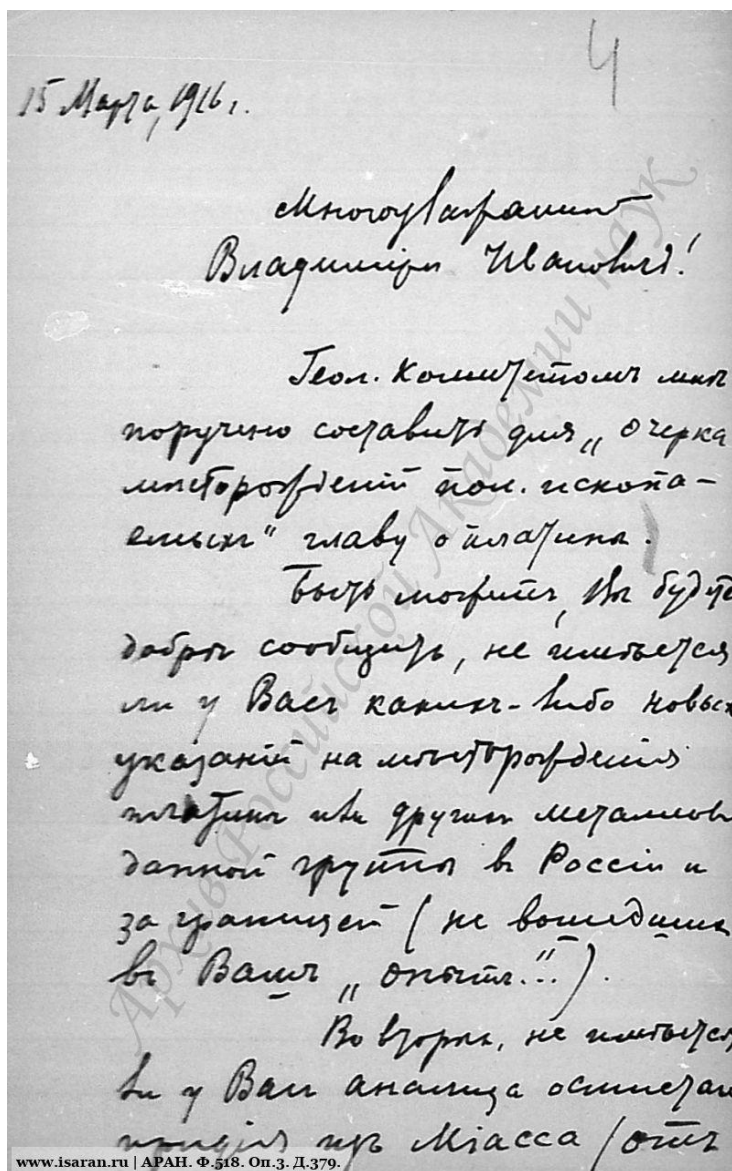 4
15 Марта, 1916 г.
Многоуважаемый
Владимiръ Ивановичъ!
Геол. Комитетомъ мнѣ
поручено составить для „Очерка
мѣсторожденiй пол. ископа-
емыхъ“ главу о платинѣ.
Быть можетъ, Вы будете
добры сообщить, не имѣется
ли у Васъ какихъ-либо новыхъ
указанiй на мѣсторожденiя
платины или другихъ металловъ
данной группы въ Россiи и
за границей (не вошедшихъ
въ Вашъ „опытъ...“).
Во вторыхъ, не имѣется
ли у Васъ анализа осмистаго
иридiя изъ Мiасса (отъ
Архив Российской Академии наук
www.isaran.ru | АРАН. Ф.518. Оп.3. Д.379.